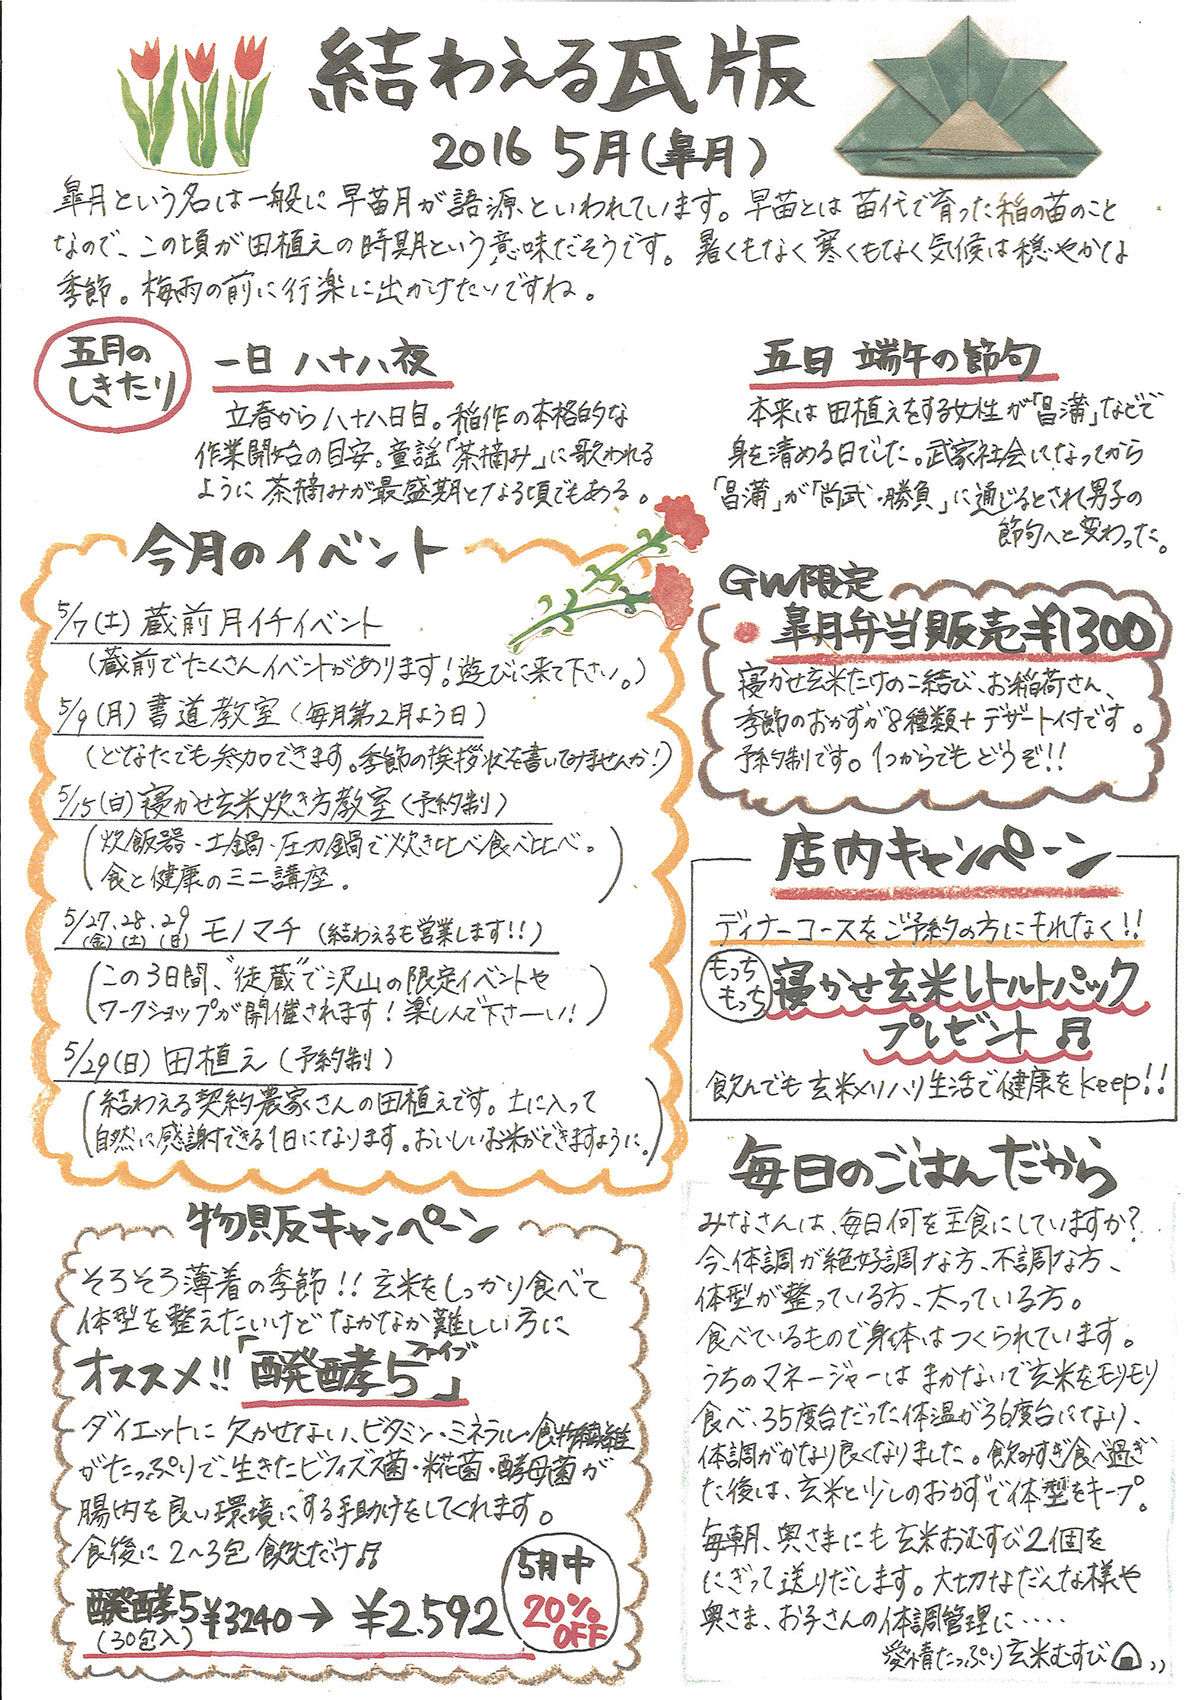 結わえる瓦版
2016 5月(皐月)
皐月という名は一般に早苗月が語源といわれています。早苗とは苗代で育った稲の苗のこと
なので、この頃が田植えの時期という意味だそうです。暑くもなく寒くもなく気候は穏やかな
季節。梅雨の前に行楽に出かけたいですね。
五月の
しきたり
一日 八十八夜
立春から八十八日目。稲作の本格的な
作業開始の目安。童謡「茶摘み」に歌われる
ように茶摘みが最盛期となる頃でもある。
五日 端午の節句
本来は田植えをする女性が「菖蒲」などで
身を清める日でした。武家社会になってから
「菖蒲」が「尚武・勝負」に通じるとされ男子の
節句へと変わった。
今月のイベント
5/7(土) 蔵前月イチイベント
(蔵前でたくさんイベントがあります!遊びに来て下さい。)
5/9(月) 書道教室 (毎月第2月よう日)
(どなたでも参加できます。季節の挨拶状を書いてみませんか!)
5/15(日) 寝かせ玄米炊き方教室 (予約制)
(炊飯器・土鍋・圧力鍋で炊き比べ食べ比べ。
食と健康のミニ講座。)
5/27.28.29 モノマチ (結わえるも営業します!!)
(金)(土)(日)
(この3日間、"徒蔵"で沢山の限定イベントや
ワークショップが開催されます!楽しんで下さーい!)
5/29(日) 田植え (予約制)
(結わえる契約農家さんの田植えです。土に入って
自然に感謝できる1日になります。おいしいお米ができますように。)
GW限定
皐月弁当販売¥1300
寝かせ玄米たけのこ結び、お稲荷さん、
季節のおかずが8種類+デザート付です。
予約制です。1つからでもどうぞ!!
店内キャンペーン
ディナーコースをご予約の方にもれなく!!
もっち
もっち
寝かせ玄米レトルトパック
プレゼント♬
飲んでも玄米メリハリ生活で健康をkeep!!
毎日のごはんだから
みなさんは、毎日何を主食にしていますか?
今、体調が絶好調な方、不調な方、
体型が整っている方、太っている方。
食べているもので身体はつくられています。
うちのマネージャーはまかないで玄米をモリモリ
食べ、35度台だった体温が36度台になり、
体調がかなり良くなりました。飲みすぎ食べ過ぎ
た後は、玄米と少しのおかずで体型をキープ。
毎朝、奥さまにも玄米おむすび2個を
にぎって送りだします。大切なだんな様や
奥さま、お子さんの体調管理に・・・・
愛情たっぷり玄米むすび
物販キャンペーン
そろそろ薄着の季節!!玄米をしっかり食べて
体型を整えたいけどなかなか難しい方に
オススメ!!「醗酵5」
ファイブ
ダイエットに欠かせない、ビタミン・ミネラル・食物繊維
がたっぷりで、生きたビフィズス菌・糀菌・酵母菌が
腸内を良い環境にする手助けをしてくれます。
食後に2~3包飲むだけ♬
醗酵5 ¥3240→¥2.592
(30包入)
5月中
20%
OFF